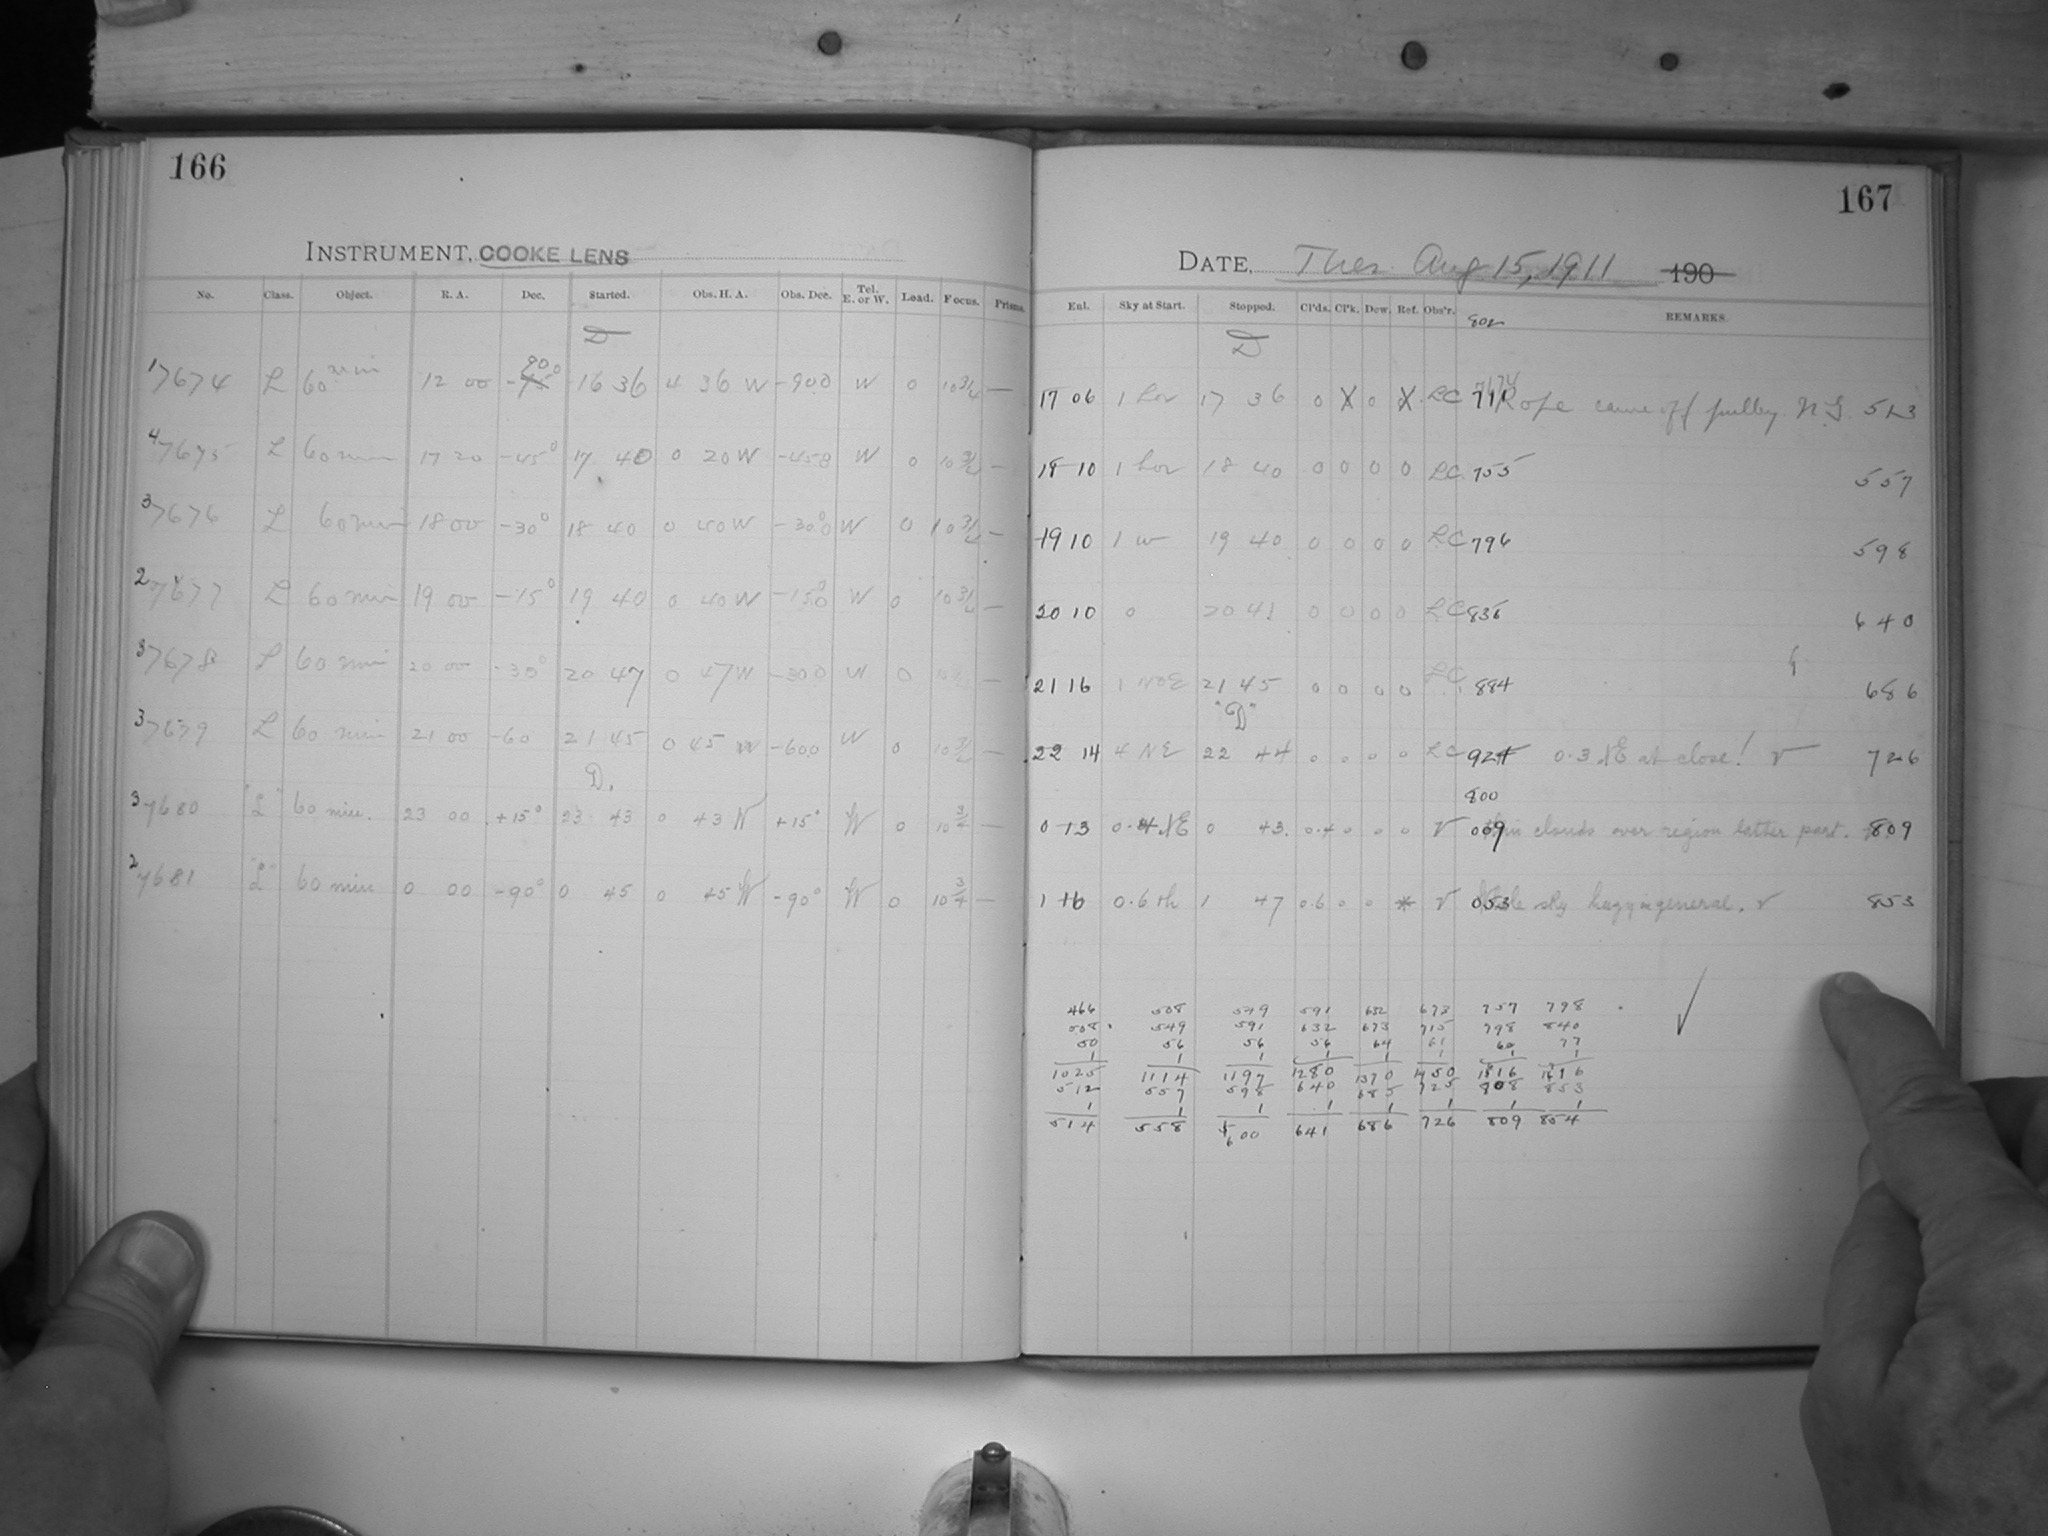 166
INSTRUMENT, COOKE LENS
No. Class. Object. R. A. Dec. Started. Obs. H. A. Obs. Dec. Tel. E. or W. Load. Focus. Prisms.
D
90
1 7674 L 60 min 12 00 16 36 4 36 W -90 0 W 0 10 3/4 —
4 7675 L 60 min 17 20 -45° 17 40 0 20 W -45 0 W 0 10 3/4 —
3 7676 L 60 min 18 00 -30° 18 40 0 40 W -30 0 W 0 10 3/4 —
2 7677 L 60 min 19 00 -15° 19 40 0 40 W -15 0 W 0 10 3/4 —
3 7678 L 60 min 20 00 -30° 20 47 0 47 W -30 0 W 0 10 3/4 —
3 7679 L 60 min 21 00 -60 21 45 0 45 W -60 0 W 0 10 3/4 —
D.
3 7680 "L" 60 min. 23 00 +15° 23 43 0 43 W +15° W 0 10 3/4 —
2 7681 "L" 60 min 0 00 -90° 0 45 0 45 W -90° W 0 10 3/4 —
167
DATE, Tues. Aug 15, 1911 190
Ent. Sky at Start. Stopped. Cl'ds. Cl'k. Dew. Ref. Obs'r. REMARKS
D
17 06 1 hor 17 36 0 X 0 X LC 711 Rope came off pulley N.G. 513
18 10 1 hor 18 40 0 0 0 0 LC 755 557
19 10 1 w 19 40 0 0 0 0 LC 796 598
20 10 0 20 41 0 0 0 0 LC 836 640
21 16 1 NOE 21 45 0 0 0 0 LC 884 686
"D"
22 14 4 NE 22 44 0 0 0 0 LC 924 0.3 NE at close! V 726
800
0 13 0.4 NE 0 43. 0.4 0 0 0 V 009 thin clouds over region latter part. 809
1 16 0.6 th 1 47 0.6 0 0 * V 053 sky hazy in general. V 853
466 508 549 591 632 673 757 798
508 549 591 632 673 715 798 840
50 56 56 56 64 61 60 77
1 1 1 1 1 1 1 1
1025 1114 1197 1280 1370 1450 1616 1716
512 557 598 640 685 725 808 853
1 1 1 1 1 1 1 1
514 558 600 641 686 726 809 854